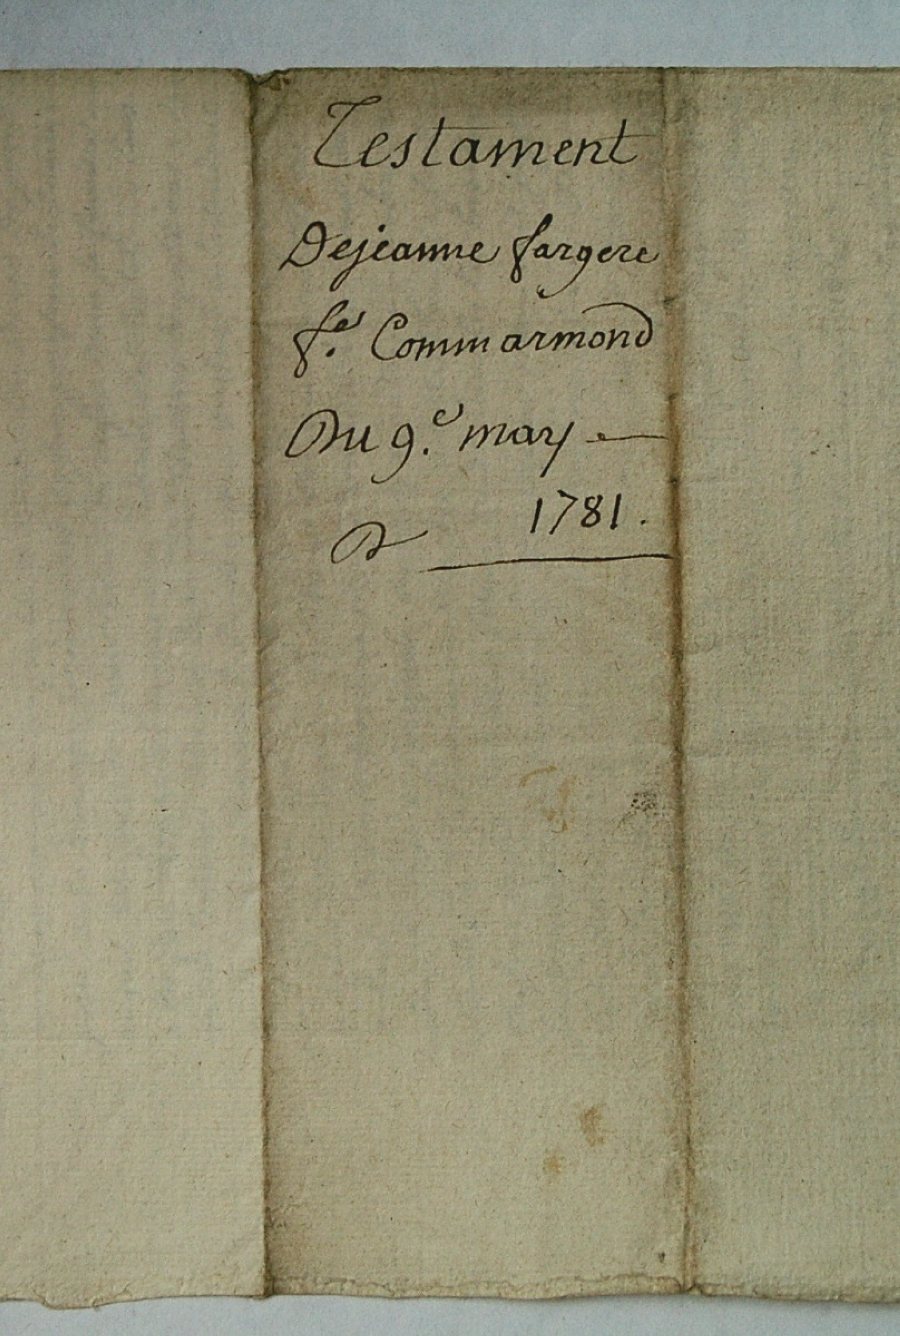 Testament
Dejeanne fargere
f.e Commarmond
Du 9.e may
1781.